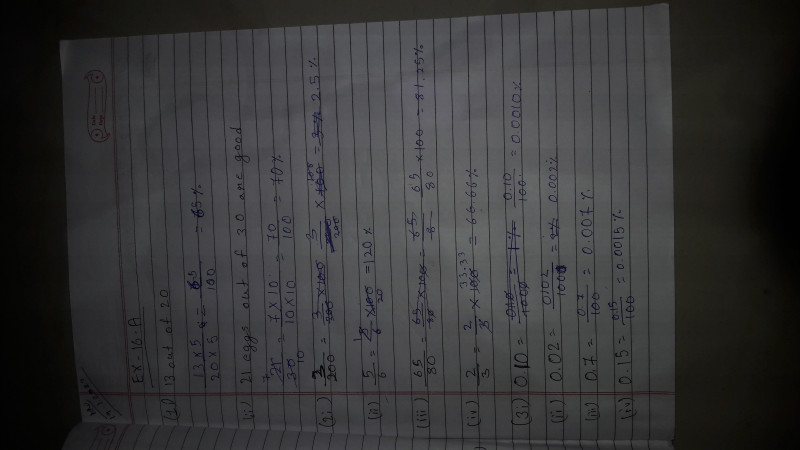 EX-16-A
(1i) 13 out of 20
13×5/20×5 = 65/100 = 65%
(ii) 21 eggs out of 30 are good
7 21/30 10 = 7×10/10×10 = 70/100 = 70%
(2i) 3/200 = 3/200 ×100 3/200 × 100 = 2.5%
(ii) 5/6 = ×100 = 120%
(iii) 65/80 = 65/80 ×100 = 65/8 65/80 ×100 = 81.25%
(iv) 2/3 = 2/3 ×100 33.33 = 66.66%
(3i) 0.10 = = 1% 0.10/100 = 0.0010%
(ii) 0.02 = 0.02 = 0.002%
(iii) 0.7 = 0.7/100 = 0.007%
(iv) 0.15 = 0.15/100 = 0.0015%